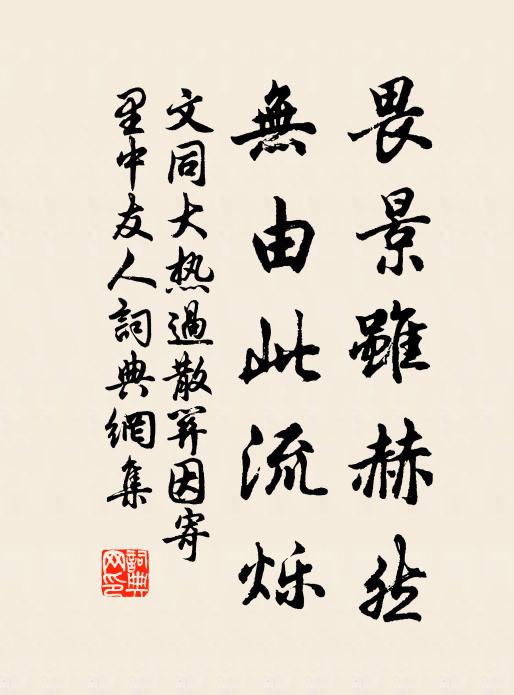 畏景雖赫然
無由此流烁
文同大热過散關因寄
里中友人詞典網集
詞典網印